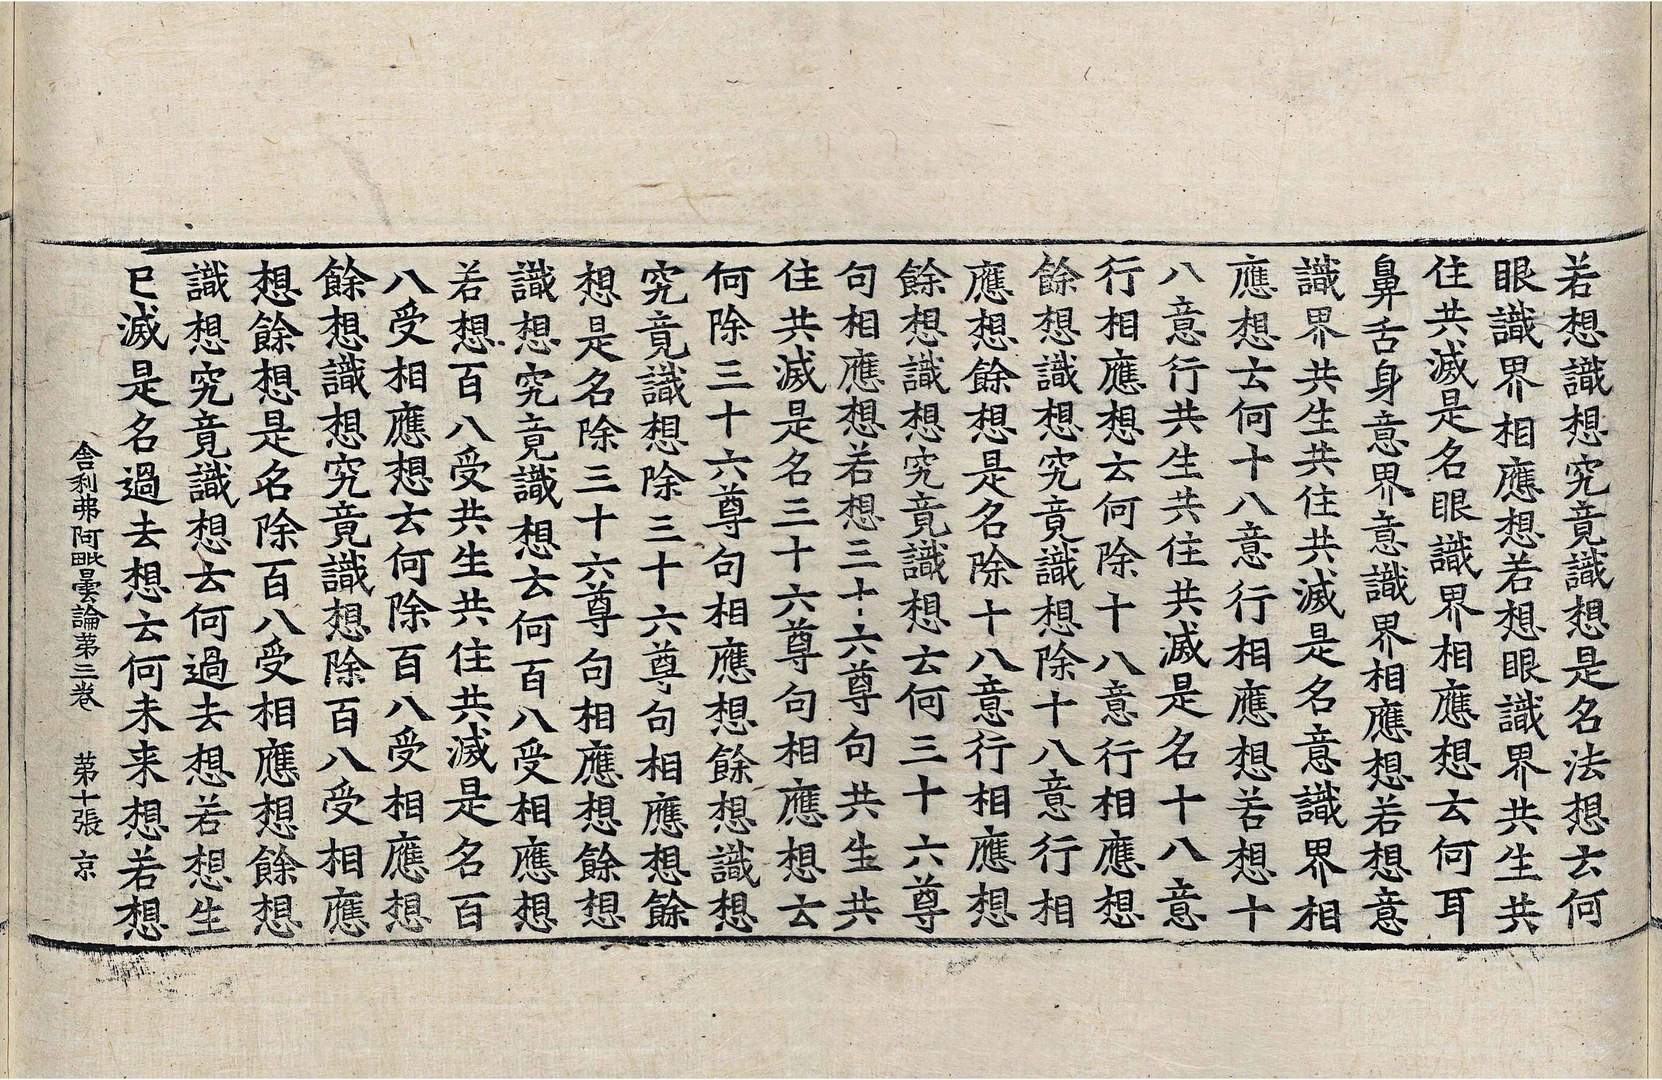 若想識想究竟識想是名法想云何
眼識界相應想若想眼識界共生共
住共滅是名眼識界相應想云何耳
鼻舌身意界意識界相應想若想意
識界共生共住共滅是名意識界相
應想云何十八意行相應想若想十
八意行共生共住共滅是名十八意
行相應想云何除十八意行相應想
餘想識想究竟識想除十八意行相
應想餘想是名除十八意行相應想
餘想識想究竟識想云何三十六尊
句相應想若想三十六尊句共生共
住共滅是名三十六尊句相應想云
何除三十六尊句相應想餘想識想
究竟識想除三十六尊句相應想餘
想是名除三十六尊句相應想餘想
識想究竟識想云何百八受相應想
若想百八受共生共住共滅是名百
八受相應想云何除百八受相應想
餘想識想究竟識想除百八受相應
想餘想是名除百八受相應想餘想
識想究竟識想云何過去想若想生
已滅是名過去想云何未来想若想
舍利弗阿毗曇論第三卷 第十張 京